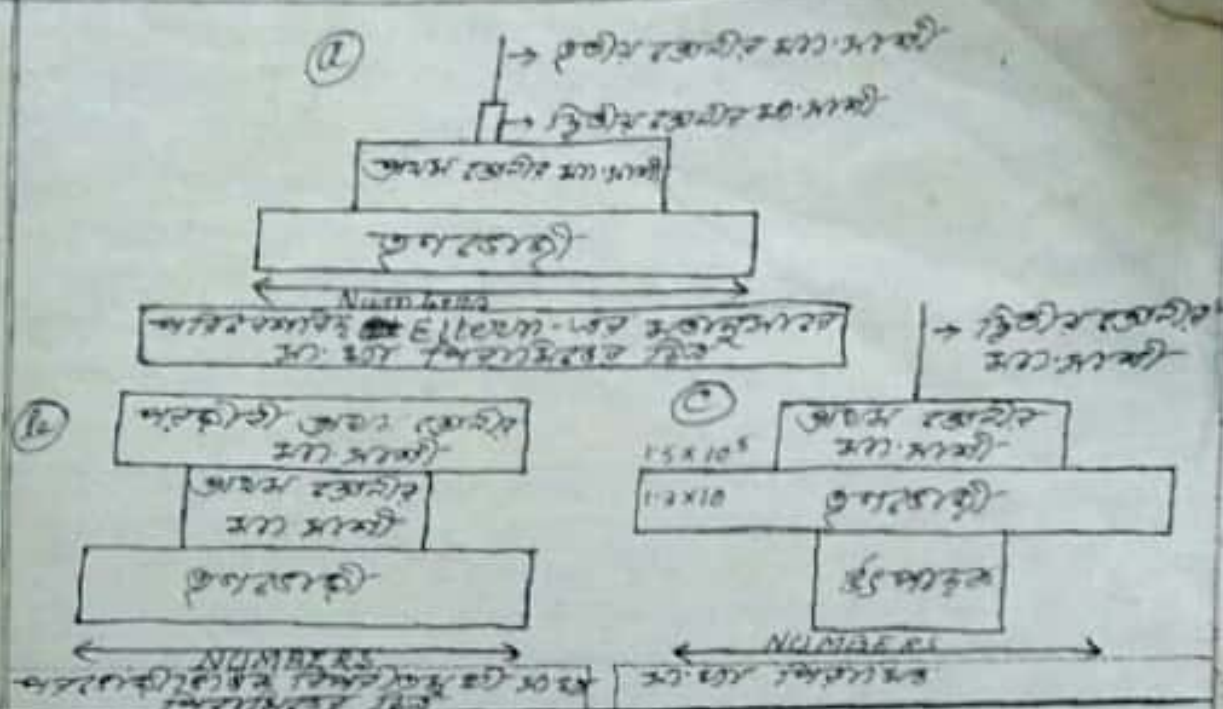 ⓐ
→ তৃতীয় শ্রেণীর মাংসাশী
→ দ্বিতীয় শ্রেণীর মাংসাশী
প্রথম শ্রেণীর মাংসাশী
তৃণভোজী
Numbers
পরিবেশবিদ Eltern-এর মতানুসারে
সংখ্যা পিরামিডের চিত্র
→ দ্বিতীয় শ্রেণীর
মাংসাশী
ⓑ
পরজীবী প্রথম শ্রেণীর
মাংসাশী
প্রথম শ্রেণীর
মাংসাশী
তৃণভোজী
NUMBERS
পিরামিডের চিত্র
ⓒ
প্রথম শ্রেণীর
মাংসাশী
1.5×10⁵
তৃণভোজী
উৎপাদক
NUMBERS
সংখ্যা পিরামিড